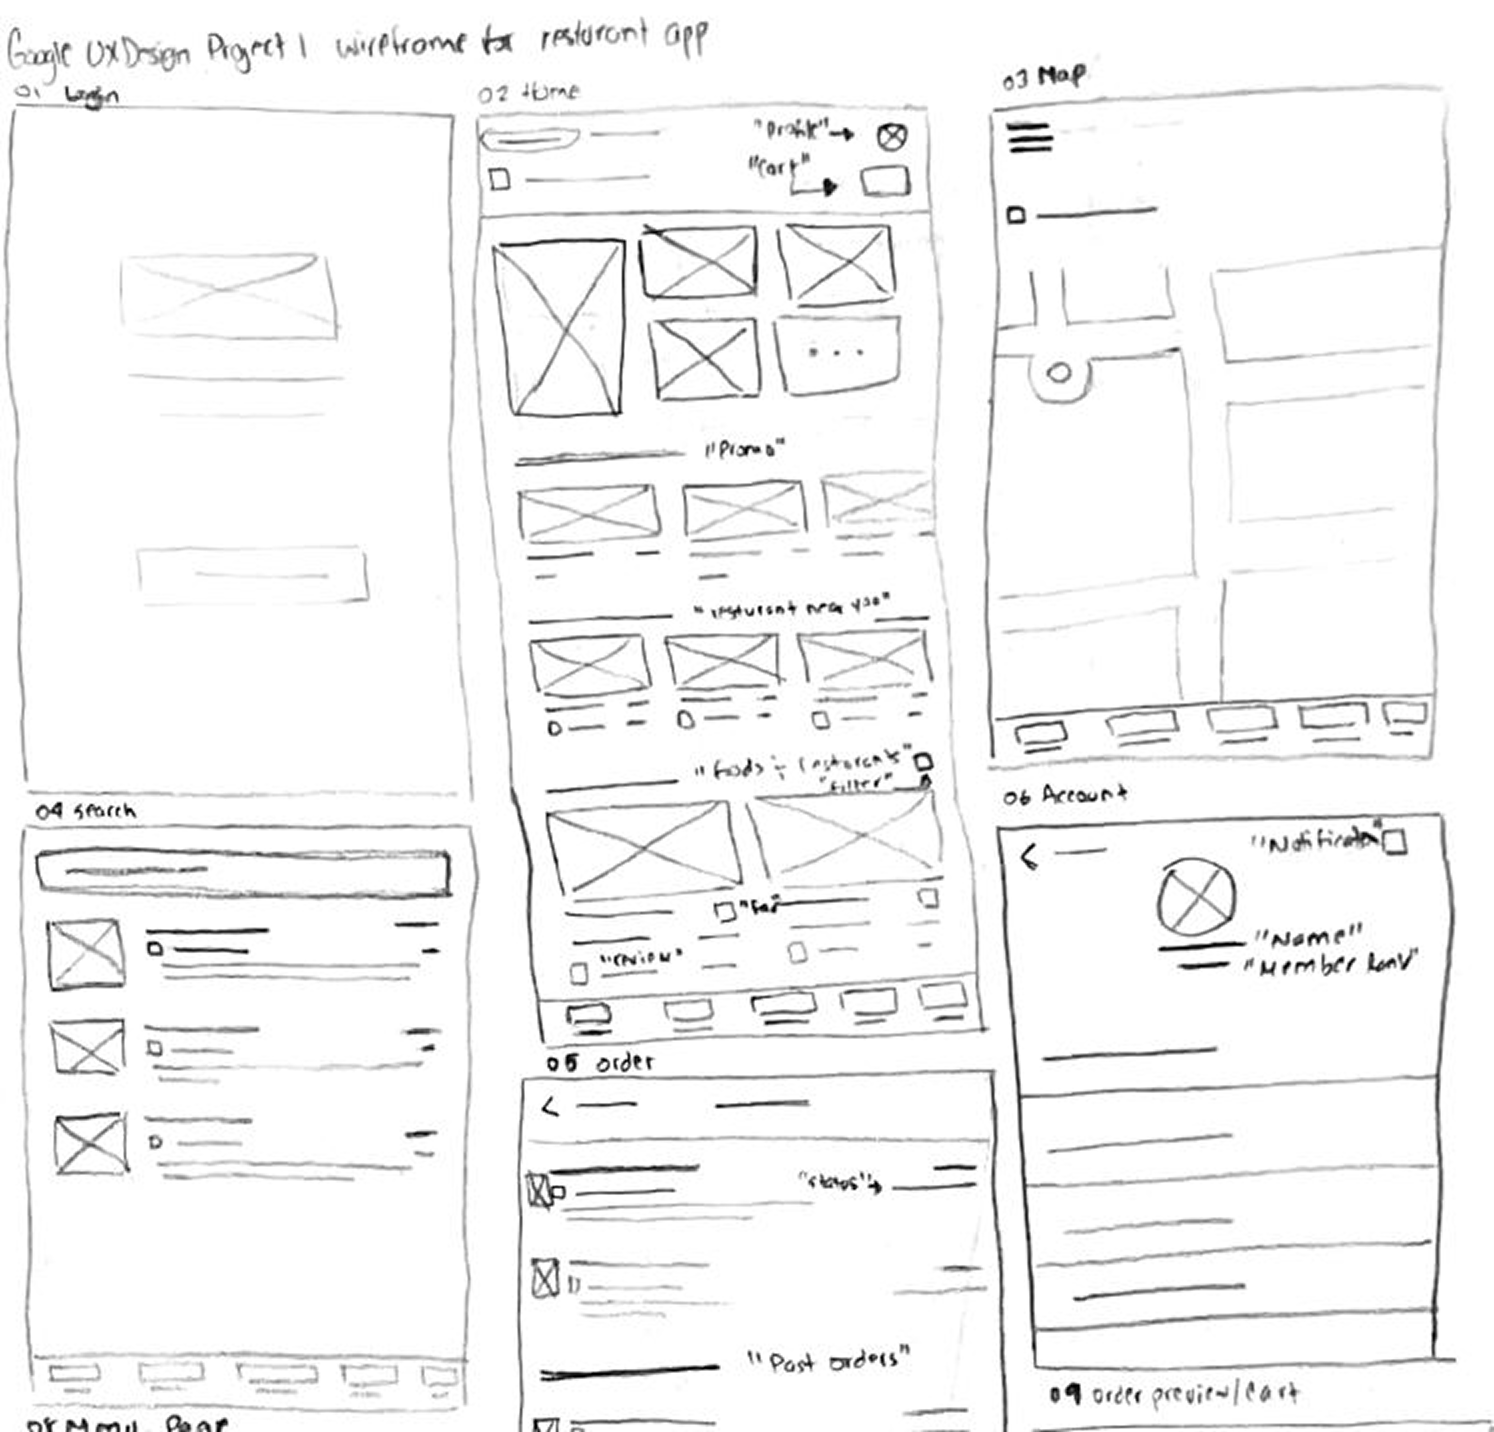 Google UX Design Project 1 wireframe for resturant app
01 Login
02 Home
"Profile"
"Cart"
"Promo"
"resturant near you"
"foods & resturants"
"filter"
"Fav"
"review"
03 Map
04 search
05 order
"status"
"Past orders"
06 Account
"Notification"
"Name"
"Member Rank"
08 Menu Page
09 order preview/cart